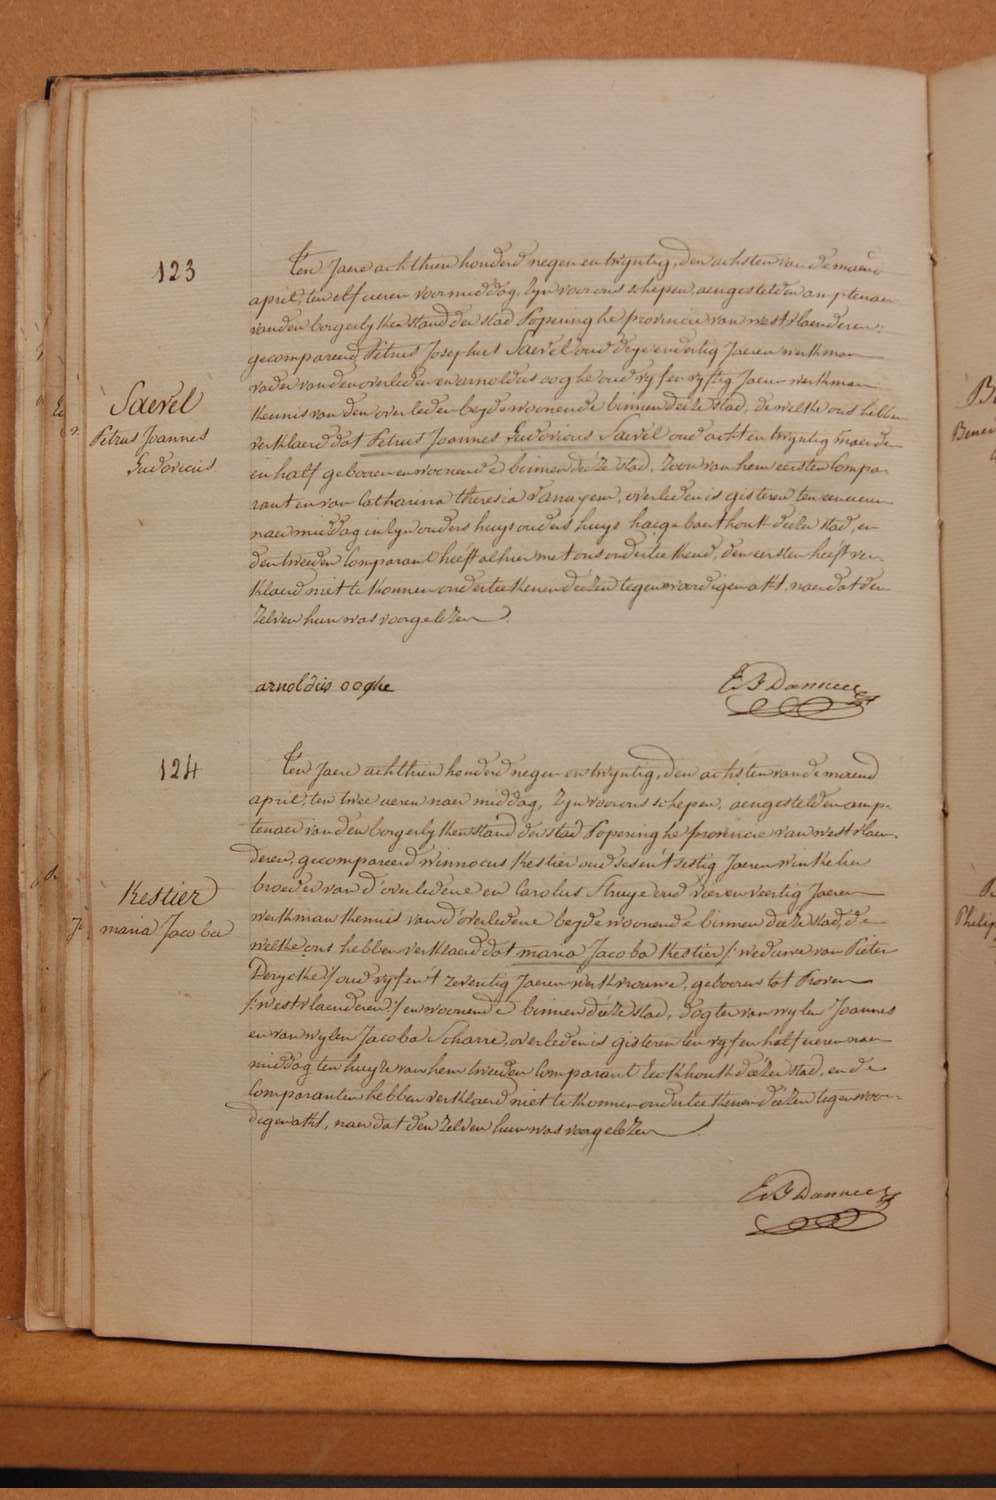 123
Saevel
Petrus Joannes
Ludovicus
Ten Jaere achthien honderd negen en twyntig, den achsten van de maend
april, ten elf ueren voormiddag, Zyn voor ons schepen, aengestelden amptenaer
van den borgerlyken stand der stad Poperinghe provincie van westvlaenderen:
gecompareerd Petrus Josephus Saevel oud dryendertig Jaeren werkman
vader van den overleden en arnoldus ooghe oud vyf en vyftig Jaeren werkman
kennis van den overleden beyde woonende binnen deeze stad, de welke ons hebben
verklaerd dat Petrus Joannes Ludovicus Saevel oud acht en twyntig maenden
en half geboren en woonende binnen deeze stad, Zoon van hem eersten Compa-
rant en van Catharina theresia, overleden is gisteren ten een uren
naer middag in Zyn ouders huys ouders huys haege bouthoutt deezer stad, en
den tweeden Comparant heeft alhier met ons onderteekend, den eersten heeft ver-
klaerd niet te konnen onderteekenen deezen tegenwoordigen akt, naer dat den
Zelven hun was voorgelezen.
arnoldus ooghe
124
Kestier
maria Jacoba
Ten Jaere achthien honderd negen en twyntig, den achsten van de maend
april, ten twee ueren naer middag, Zyn voor ons schepen, aengestelden amp-
tenaer van den borgerlyken stand der stad Poperinghe provincie van westvlaen-
deren, gecompareerd winnocus Kestier oud sesen't sestig Jaeren winkelier
broeder van d'overledene en Carolus Struye oud vier en veertig Jaeren
werkman kennis van d'overledene beyde woonende binnen deeze stad, de
welke ons hebben verklaerd dat maria Jacoba Kestier /: weduwe van Pieter
Derycke :/ oud vyf en 't zeventig Jaeren werkvrouwe, geboren tot Proven
/: westvlaenderen :/ en woonende binnen deeze stad, dogter van wylen Joannes
en van wylen Jacoba Scharre, overleden is gisteren ten vyf en half ueren naer
middag ten huyze van hem tweeden Comparant Eeckhoutt deezer stad, en de
Comparanten hebben verklaerd niet te konnen onderteekenen deezen tegenwoor-
digen akt, naer dat den Zelven hun was voorgelezen.